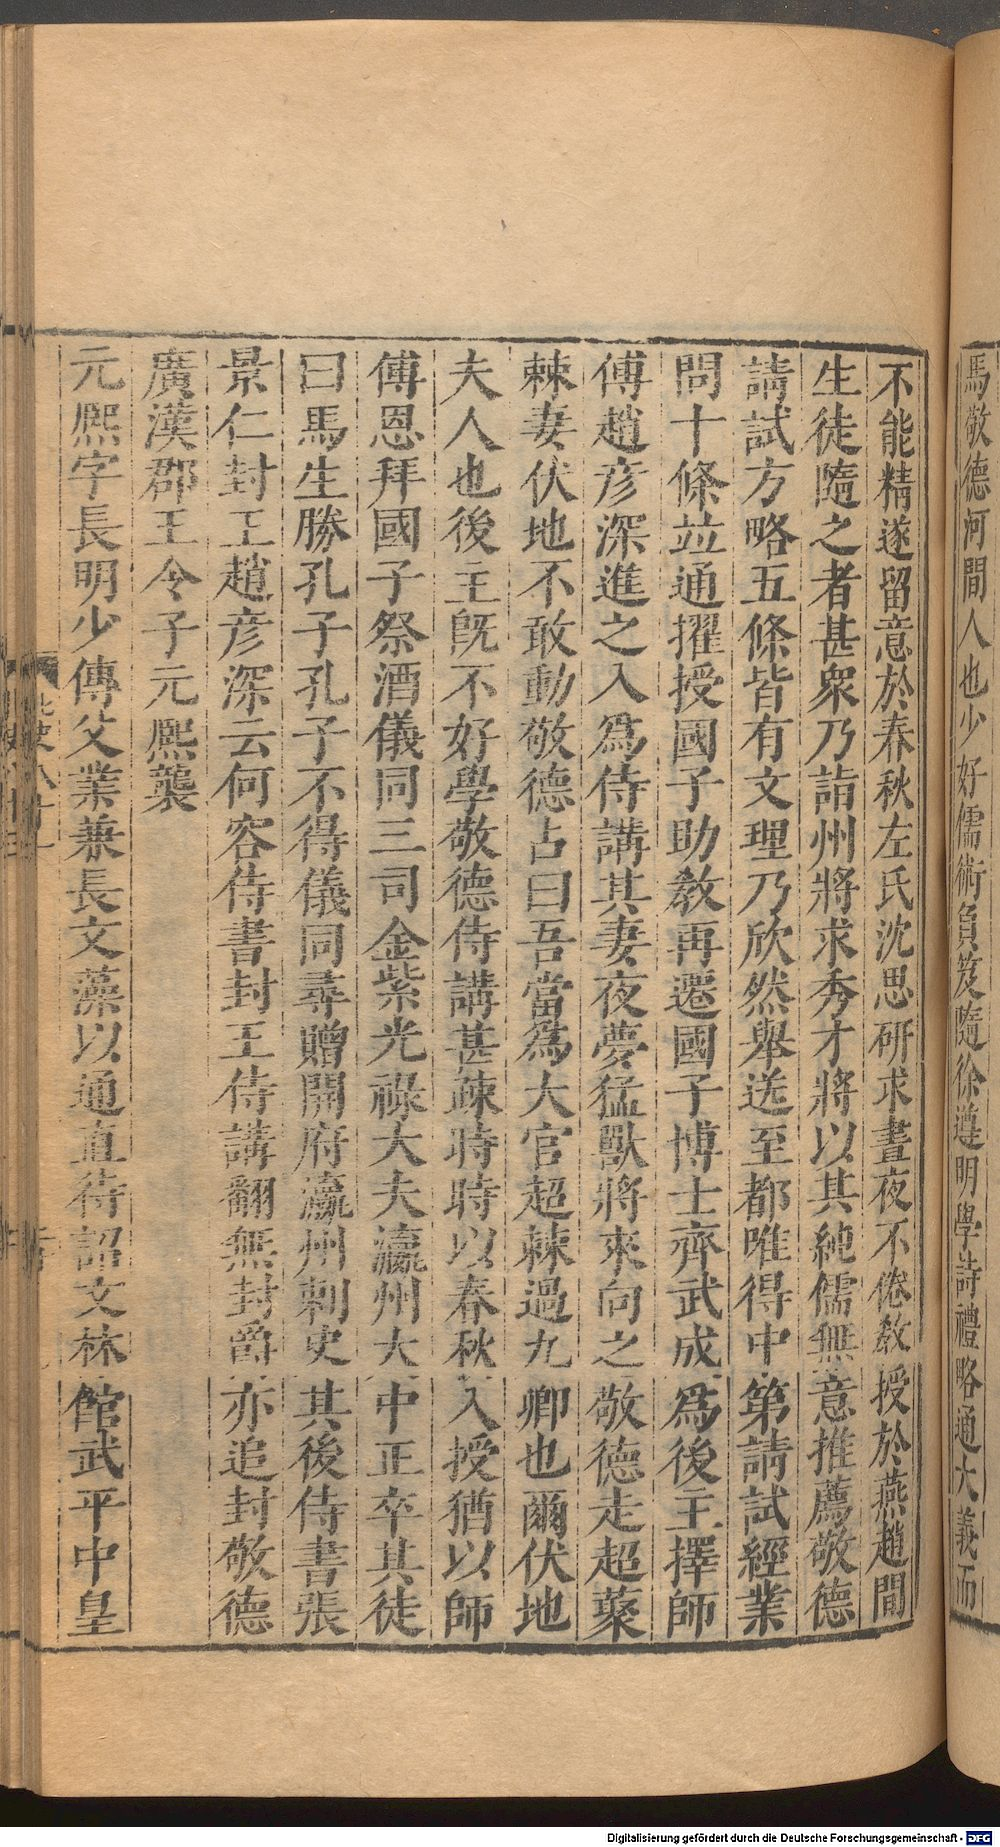 馬敬德河間人也少好儒術負笈隨徐遵明學詩禮略通大義而
不能精遂留意於春秋左氏沈思研求晝夜不倦敎授於燕趙間
生徒隨之者甚衆乃詣州將求秀才將以其純儒無意推薦敬德
請試方略五條皆有文理乃欣然舉送至都唯得中第請試經業
問十條並通擢授國子助敎再遷國子博士齊武成爲後主擇師
傅趙彥深進之入爲侍講其妻夜夢猛獸將來向之敬德走超藂
棘妻伏地不敢動敬德占曰吾當爲大官超棘過九卿也爾伏地
夫人也後主旣不好學敬德侍講甚疎時時以春秋入授猶以師
傅恩拜國子祭酒儀同三司金紫光祿大夫瀛州大中正卒其徒
曰馬生勝孔子孔子不得儀同尋贈開府瀛州刺史其後侍書張
景仁封王趙彥深云何容侍書封王侍講翻無封爵亦追封敬德
廣漢郡王令子元熙襲
元熙字長明少傳父業兼長文藻以通直待詔文林館武平中皇
Digitalisierung gefördert durch die Deutsche Forschungsgemeinschaft - DFG